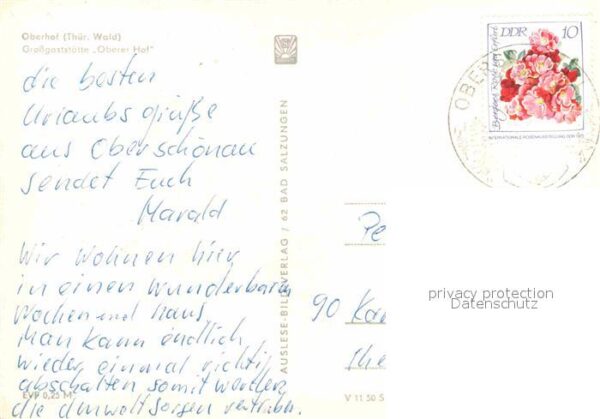 Oberhof (Thür. Wald)
Großgaststätte „Oberer Hof"
die besten
Urlaubsgrüße
aus Oberschönau
sendet Euch
Harald
Wir wohnen hier
in einem wunderbaren
Wochenendhaus.
Man kann endlich
wieder einmal richtig
abschalten somit werden
die Umweltsorgen vertrieben.
EVP 0,25 M
AUSLESE-BILD-VERLAG / 62 BAD SALZUNGEN
DDR 10
INTERNATIONALE ROSENAUSSTELLUNG DDR 1972
OBER
Pe
90 Ka
The
V 11 50 S
privacy protection
Datenschutz